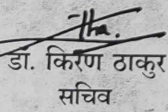 डॉ. किरण ठाकुर
सचिव